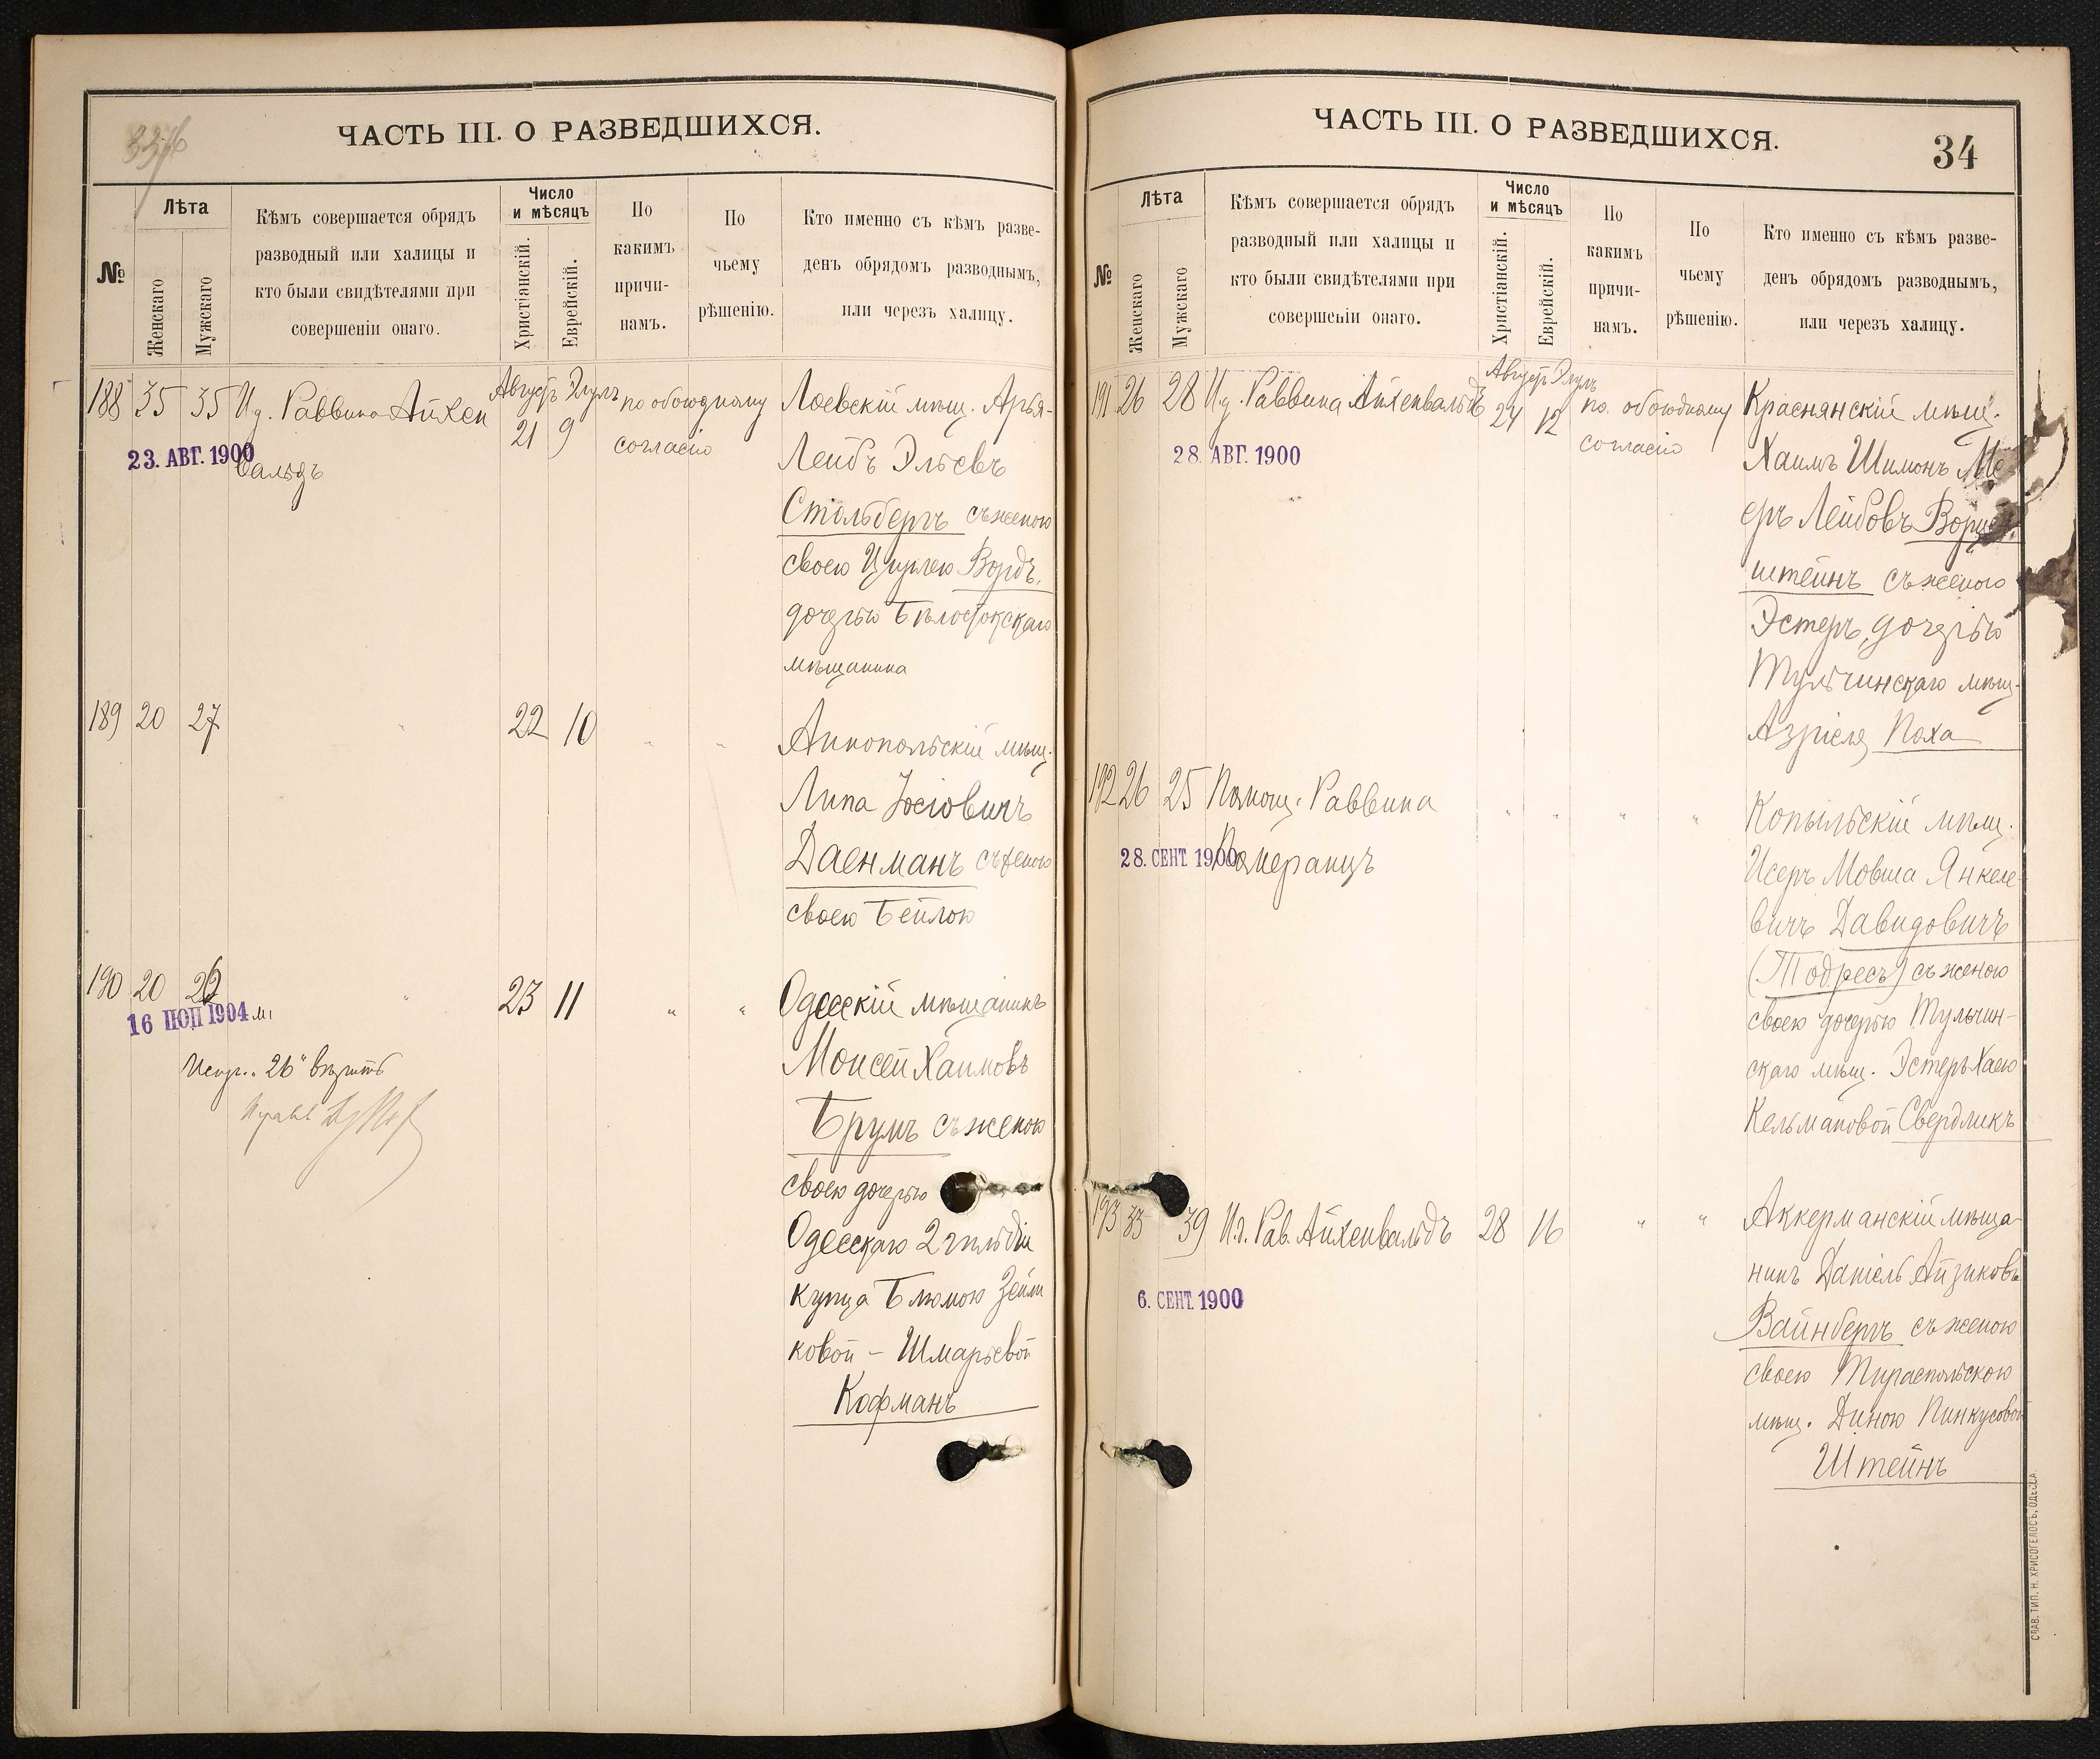 ЧАСТЬ III. О РАЗВЕДШИХСЯ.
№
Лѣта
Женскаго
Мужскаго
Кѣмъ совершается обрядъ
разводный или халицы и
кто были свидѣтелями при
совершеніи онаго.
Число
и мѣсяцъ
Христіанскій.
Еврейскій.
По
какимъ
причи-
намъ.
По
чьему
рѣшенію.
Кто именно съ кѣмъ разве-
денъ обрядомъ разводнымъ,
или черезъ халицу.
188 35 35 И д. Раввина Айхен
вальдъ
23. АВГ. 1900
Августъ Элулъ
21 9
по обоюдному
согласію
Лоевскій мѣщ. Арья-
Лейбъ Эльевъ
Стольбергъ съ женою
своею Цирлею
дочерью Бѣлостокскаго
мѣщанина
189 20 27 " 22 10 " "
Аннопольскій мѣщ.
Липа Іосіовичъ
Даенманъ съ женою
своею Бейлою
190 20 26 " 23 11 " "
16 1904
Испр. "26" вѣрить
Одесскій мѣщанинъ
Моисей Хаимовъ
Брумъ съ женою
своею дочерью
Одесскаго 2 гильдіи
купца Блюмою Зейли
ковой - Шмарьевой
Кофманъ
ЧАСТЬ III. О РАЗВЕДШИХСЯ.
34
№
Лѣта
Женскаго
Мужскаго
Кѣмъ совершается обрядъ
разводный или халицы и
кто были свидѣтелями при
совершеніи онаго.
Число
и мѣсяцъ
Христіанскій.
Еврейскій.
По
какимъ
причи-
намъ.
По
чьему
рѣшенію.
Кто именно съ кѣмъ разве-
денъ обрядомъ разводнымъ,
или черезъ халицу.
191 26 28 И д. Раввина Айхенвальдъ
28. АВГ. 1900
Августъ Элулъ
24 12
по обоюдному
согласію
Краснянскій мѣщ.
Хаимъ Шимонъ Ме
еръ Лейбовъ
штейнъ съ женою
Эстеръ, дочерью
Тульчинскаго мѣщ.
Азріеля Поха
192 26 25 Помощ. Раввина
Померанцъ
28. СЕНТ. 1900
" " " "
Копыльскій мѣщ.
Исеръ Мовша Янкеле-
вичъ Давидовичъ
(Тодресъ) съ женою
своею дочерью Тульчин-
скаго мѣщ. Эстеръ Хаею
Кельмановой Свердликъ
193 33 39 И.д. Рав. Айхенвальдъ 28 16 " "
6. СЕНТ. 1900
Аккерманскій мѣща-
нинъ Даніель Айзиковъ
Вайнбергъ съ женою
своею Тираспольскою
мѣщ. Диною Пинкусовой
Штейнъ
СЛАВ. ТИП. Н. ХРИСОГЕЛОСЪ, ОДЕССА.